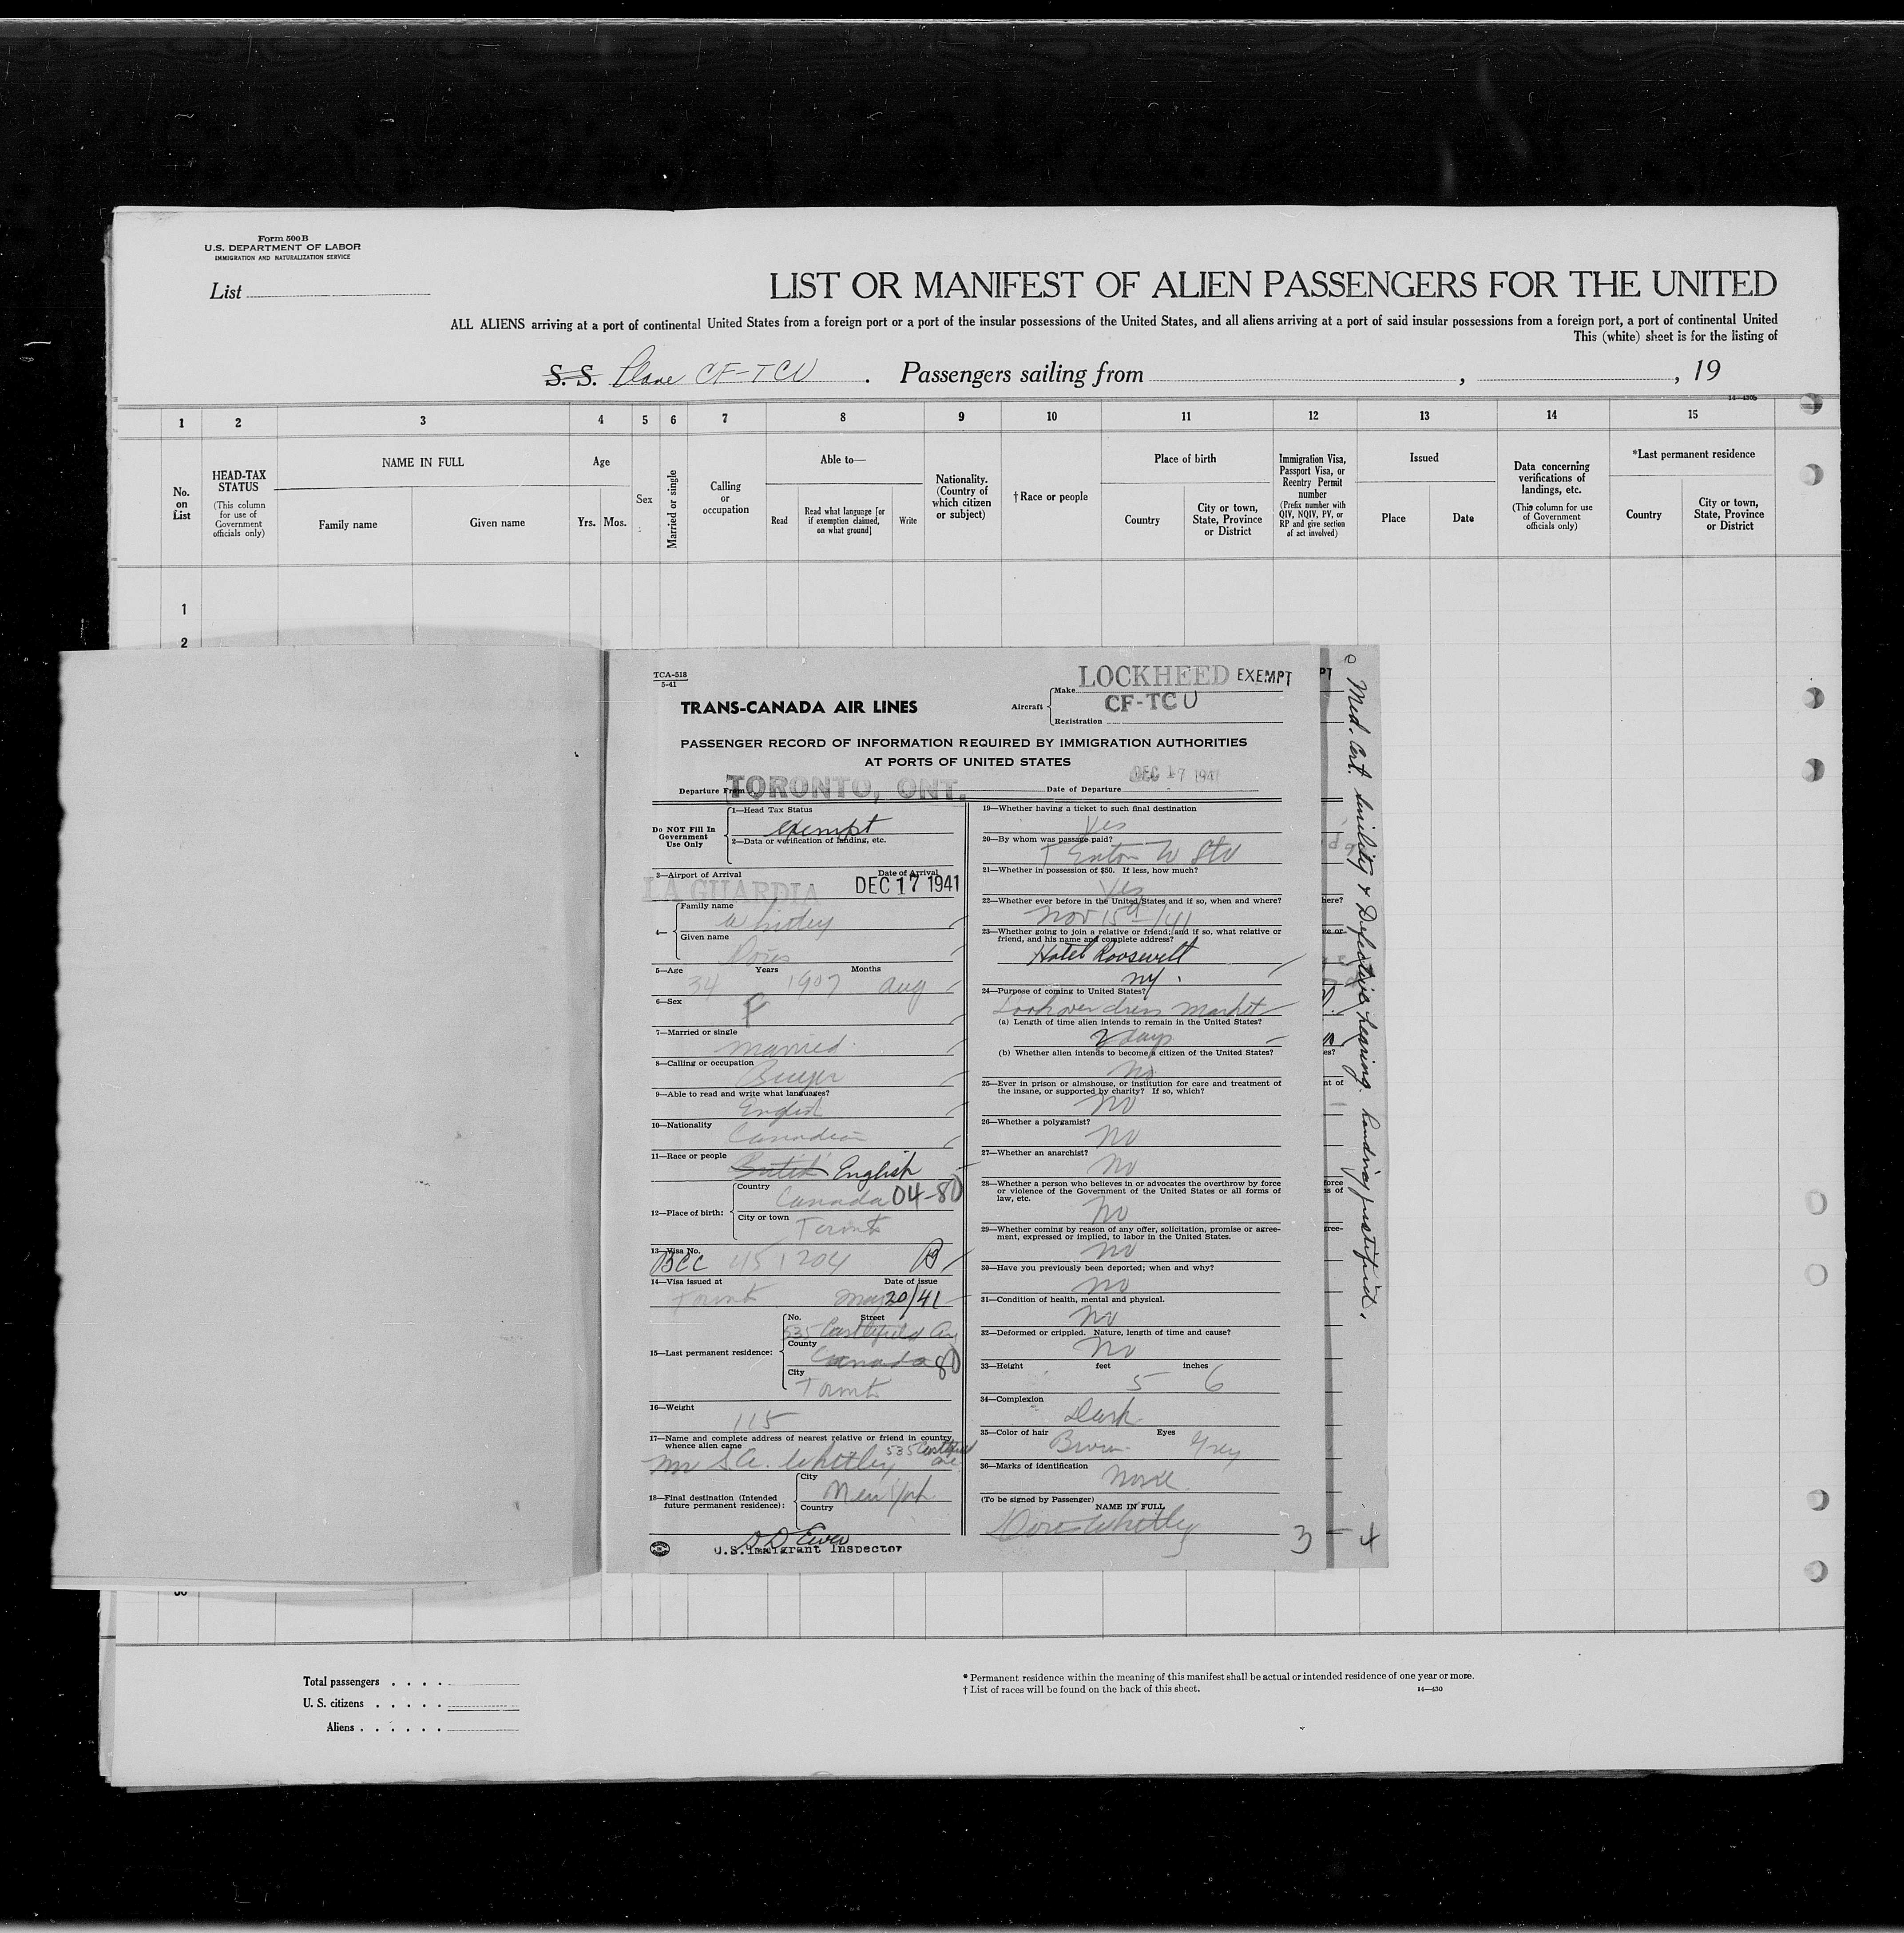 Form 500B
U.S. DEPARTMENT OF LABOR
IMMIGRATION AND NATURALIZATION SERVICE
List
LIST OR MANIFEST OF ALIEN PASSENGERS FOR THE UNITED
ALL ALIENS arriving at a port of continental United States from a foreign port or a port of the insular possessions of the United States, and all aliens arriving at a port of said insular possessions from a foreign port, a port of continental United
This (white) sheet is for the listing of
S. S. Plane CF-TCU. Passengers sailing from , , 19
14—430b
1 2 3 4 5 6 7 8 9 10 11 12 13 14 15
No. on List
HEAD-TAX STATUS
(This column for use of Government officials only)
NAME IN FULL
Family name
Given name
Age
Yrs. Mos.
Sex
Married or single
Calling or occupation
Able to—
Read
Read what language [or if exemption claimed, on what ground]
Write
Nationality. (Country of which citizen or subject)
† Race or people
Place of birth
Country
City or town, State, Province or District
Immigration Visa, Passport Visa, or Reentry Permit number
(Prefix number with QIV, NQIV, PV, or RP and give section of act involved)
Issued
Place
Date
Data concerning verifications of landings, etc.
(This column for use of Government officials only)
*Last permanent residence
Country
City or town, State, Province or District
1
2
TCA-518
5-41
TRANS-CANADA AIR LINES
Aircraft
Make LOCKHEED EXEMPT
CF-TCU
Registration
PASSENGER RECORD OF INFORMATION REQUIRED BY IMMIGRATION AUTHORITIES
AT PORTS OF UNITED STATES
Departure From TORONTO, ONT. Date of Departure DEC 17 1941
Do NOT Fill In Government Use Only
1—Head Tax Status
exempt
2—Data or verification of landing, etc.
3—Airport of Arrival Date of Arrival
LA GUARDIA DEC 17 1941
4— Family name
Whitley
Given name
Doris
5—Age Years Months
34 1907 Aug
6—Sex
F
7—Married or single
married
8—Calling or occupation
Buyer
9—Able to read and write what languages?
English
10—Nationality
Canadian
11—Race or people
British English
12—Place of birth: Country
Canada 04-80
City or town
Toronto
13—Visa No.
BCC 1151204 B
14—Visa issued at Date of issue
Toronto May 20/41
15—Last permanent residence: No. Street
535 Castlefield Av
County
Canada 80
City
Toronto
16—Weight
115
17—Name and complete address of nearest relative or friend in country whence alien came
535 Castlefield Ave
Mr S.A. Whitley
18—Final destination (Intended future permanent residence): City
New York
Country
U.S. Immigrant Inspector
19—Whether having a ticket to such final destination
Yes
20—By whom was passage paid?
T Eaton Co Ltd
21—Whether in possession of $50. If less, how much?
Yes
22—Whether ever before in the United States and if so, when and where?
Nov 15th/41
23—Whether going to join a relative or friend; and if so, what relative or friend, and his name and complete address?
Hotel Roosevelt
NY.
24—Purpose of coming to United States?
Look over dress market
(a) Length of time alien intends to remain in the United States?
2 days
(b) Whether alien intends to become a citizen of the United States?
No
25—Ever in prison or almshouse, or institution for care and treatment of the insane, or supported by charity? If so, which?
No
26—Whether a polygamist?
No
27—Whether an anarchist?
No
28—Whether a person who believes in or advocates the overthrow by force or violence of the Government of the United States or all forms of law, etc.
No
29—Whether coming by reason of any offer, solicitation, promise or agreement, expressed or implied, to labor in the United States.
No
30—Have you previously been deported; when and why?
No
31—Condition of health, mental and physical.
No
32—Deformed or crippled. Nature, length of time and cause?
No
33—Height feet inches
5 6
34—Complexion
Dark
35—Color of hair Eyes
Brown Grey
36—Marks of identification
None
(To be signed by Passenger)
NAME IN FULL
Doris Whitley
3 — 4
Med. Cert. Senility & Defective hearing. Landing justified.
Total passengers
U. S. citizens
Aliens
* Permanent residence within the meaning of this manifest shall be actual or intended residence of one year or more.
† List of races will be found on the back of this sheet.
14—430